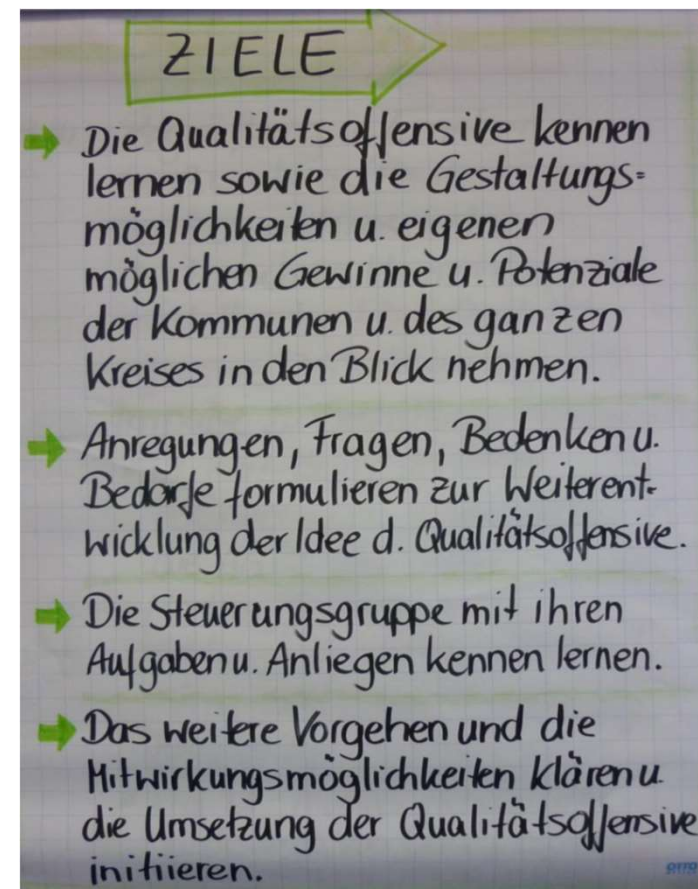 ZIELE
Die Qualitätsoffensive kennen
lernen sowie die Gestaltungs=
möglichkeiten u. eigenen
möglichen Gewinne u. Potenziale
der Kommunen u. des ganzen
Kreises in den Blick nehmen.
Anregungen, Fragen, Bedenken u.
Bedarfe formulieren zur Weiterent-
wicklung der Idee d. Qualitätsoffensive.
Die Steuerungsgruppe mit ihren
Aufgaben u. Anliegen kennen lernen.
Das weitere Vorgehen und die
Mitwirkungsmöglichkeiten klären u
die Umsetzung der Qualitätsoffensive
initiieren.